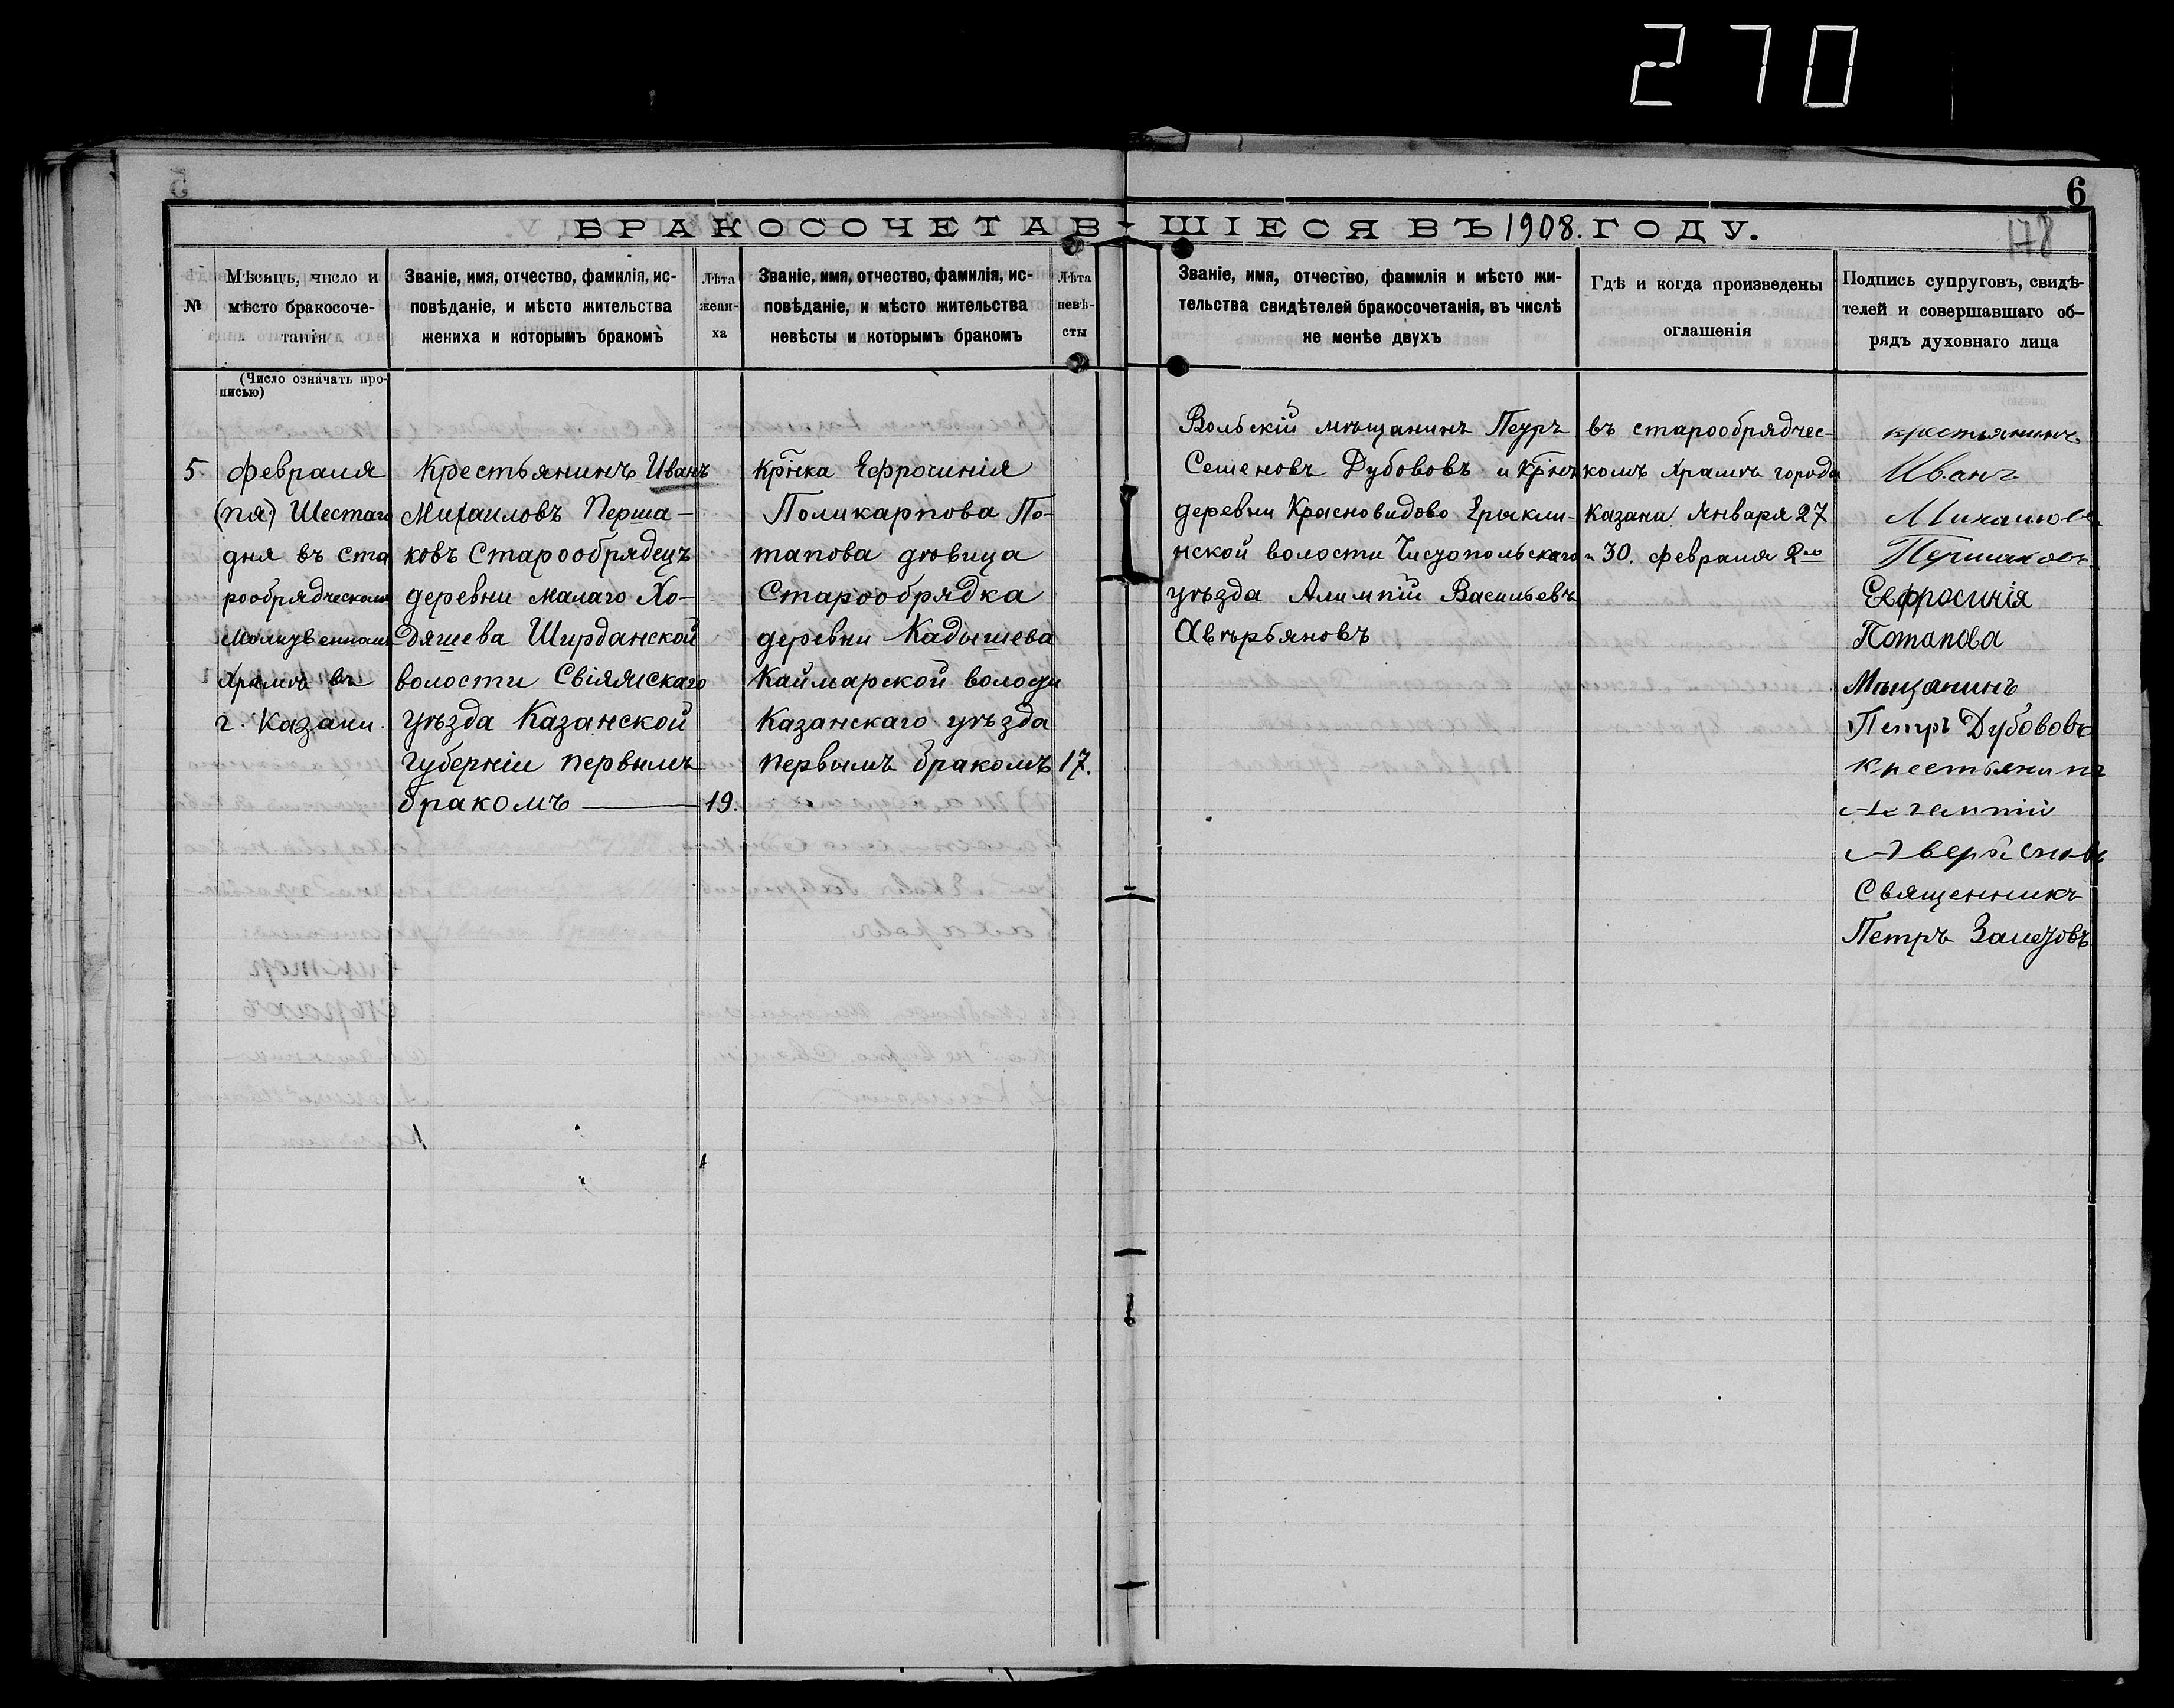 270
6
178
БРАКОСОЧЕТАВ-ШІЕСЯ ВЪ 1908. ГОДУ.
№
Мѣсяцъ, число и
мѣсто бракосоче-
танія
(Число означать про-
писью)
Званіе, имя, отчество, фамилія, ис-
повѣданіе, и мѣсто жительства
жениха и которымъ бракомъ
Лѣта
жени-
ха
Званіе, имя, отчество, фамилія, ис-
повѣданіе, и мѣсто жительства
невѣсты и которымъ бракомъ
Лѣта
невѣ-
сты
Званіе, имя, отчество, фамилія и мѣсто жи-
тельства свидѣтелей бракосочетанія, въ числѣ
не менѣе двухъ
Гдѣ и когда произведены
оглашенія
Подпись супруговъ, свидѣ-
телей и совершавшаго об-
рядъ духовнаго лица
5.
февраля
Шестаго
дня въ ста
рообрядческомъ
Молитвенномъ
Храмѣ въ
г. Казани.
Крестьянинъ Иванъ
Михаиловъ Перша-
ковъ Старообрядецъ
деревни Малаго Хо-
дяшева Ширданской
волости Свіяжскаго
уѣзда Казанской
губерніи первымъ
бракомъ
19.
крⷭ҇нка Ефросинія
Поликарпова По-
тапова дѣвица
Старообрядка
деревни Кадышева
Каймарской волости
Казанскаго уѣзда
первымъ бракомъ
17.
Вольскій мѣщанинъ Петръ
Семеновъ Дубововъ и крⷭ҇нъ
деревни Красновидово Ерыкли-
нской волости Чистопольскаго
уѣзда Алимпій Васильевъ
Авѣрьяновъ
въ старообрядчес-
комъ храмѣ города
Казани Января 27
и 30. февраля 2го
крестьянинъ
Иванъ
Михаиловъ
Першаковъ
Евфросинія
Потапова
Мѣщанинъ
Петръ Дубововъ
крестьянинъ
Алемпій
Аверьяновъ
Священникъ
Петръ Залетовъ